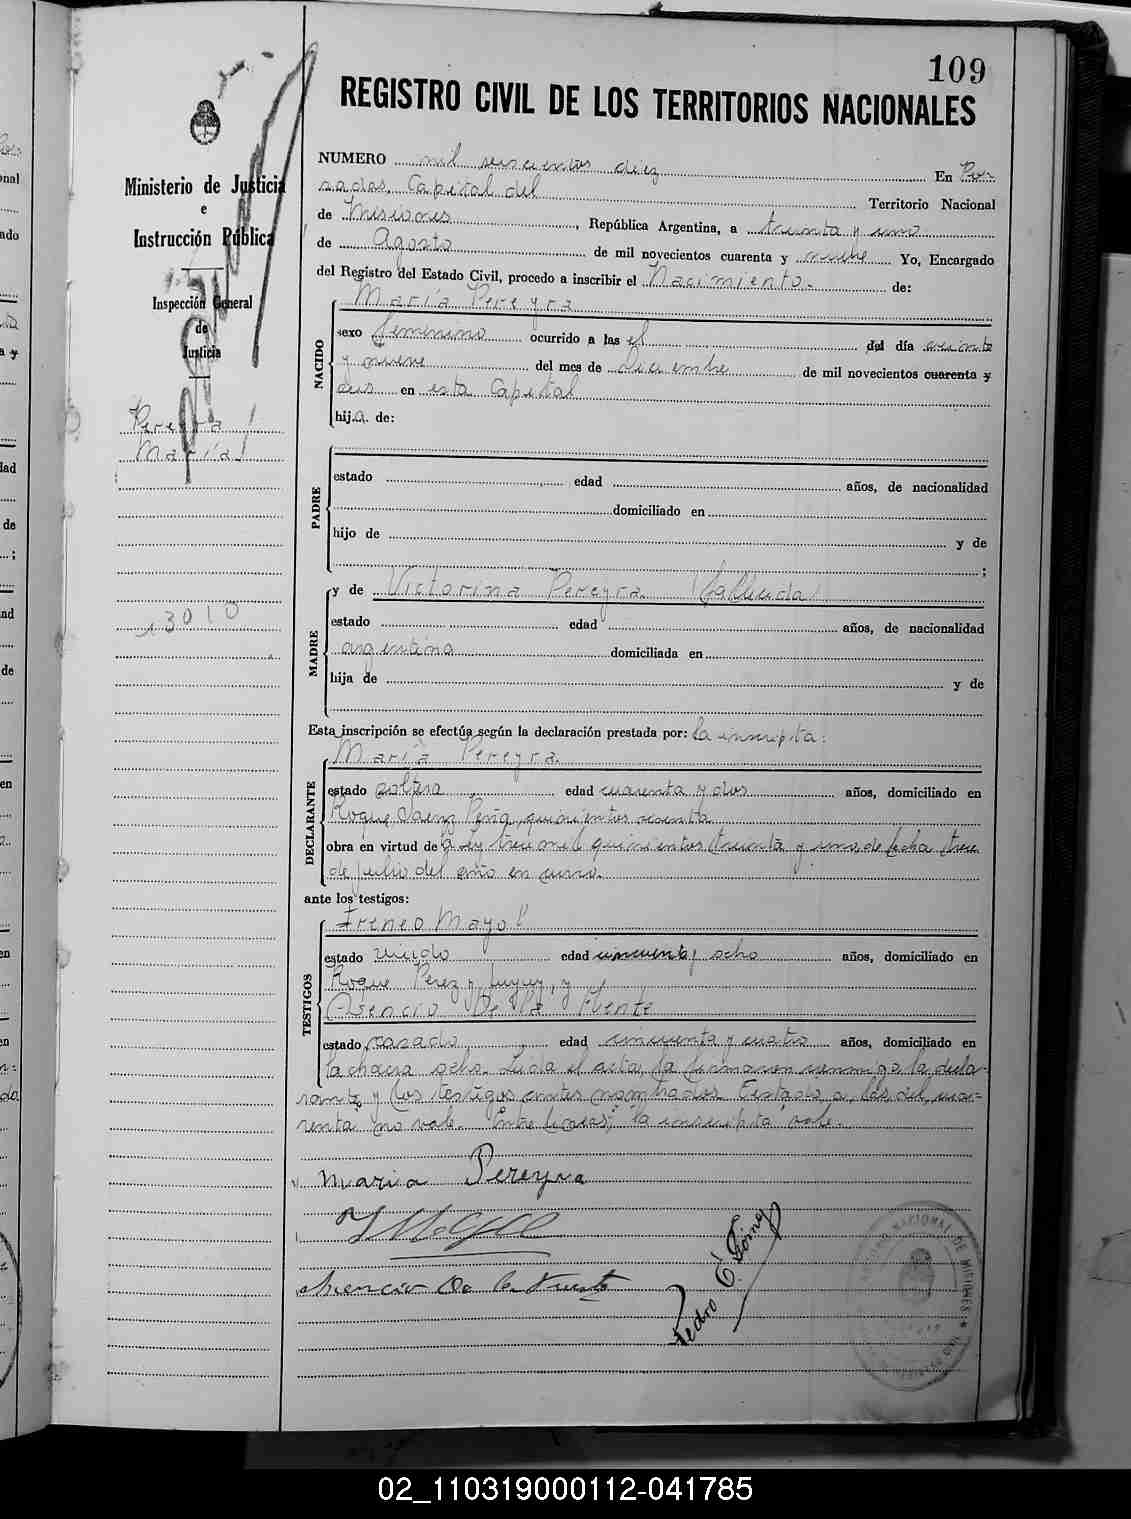 109
REGISTRO CIVIL DE LOS TERRITORIOS NACIONALES
Ministerio de Justicia
e
Instrucción Pública
Inspección General
de
Justicia
Pereyra
María
13010
NUMERO mil seiscientos diez En Po-
sadas, Capital del Territorio Nacional
de Misiones, República Argentina, a treinta y uno
de Agosto de mil novecientos cuarenta y nueve Yo, Encargado
del Registro del Estado Civil, procedo a inscribir el Nacimiento.- de:
NACIDO
María Pereyra
sexo femenino ocurrido a las el del día veinte
y nueve del mes de Diciembre de mil novecientos cuarenta y
seis en esta Capital
hija de:
PADRE
estado edad años, de nacionalidad
domiciliado en
hijo de y de
;
MADRE
y de Victorina Pereyra (fallecida)
estado edad años, de nacionalidad
argentina domiciliada en
hija de y de
Esta inscripción se efectúa según la declaración prestada por: la inscripta:
DECLARANTE
María Pereyra.
estado soltera edad cuarenta y dos años, domiciliado en
Roque Saenz Peña quinientos sesenta
obra en virtud de Ley trece mil quinientos treinta y uno, de fecha trece
de julio del año en curso.
ante los testigos:
TESTIGOS
Ireneo Mayol
estado viudo edad cincuenta y ocho años, domiciliado en
Roque Perez y Jujuy, y
Asencio De la Fuente
estado casado edad cincuenta y cuatro años, domiciliado en
la chacra ocho. Leída el acta, la firmaron conmigo la decla-
rante y los testigos antes nombrados. Testado a, las, del, cua-
renta no vale. Entre lineas: "la inscripta" vale.-
Maria Pereyra
Asencio De la Fuente
Pedro C. Gómez
02_110319000112-041785